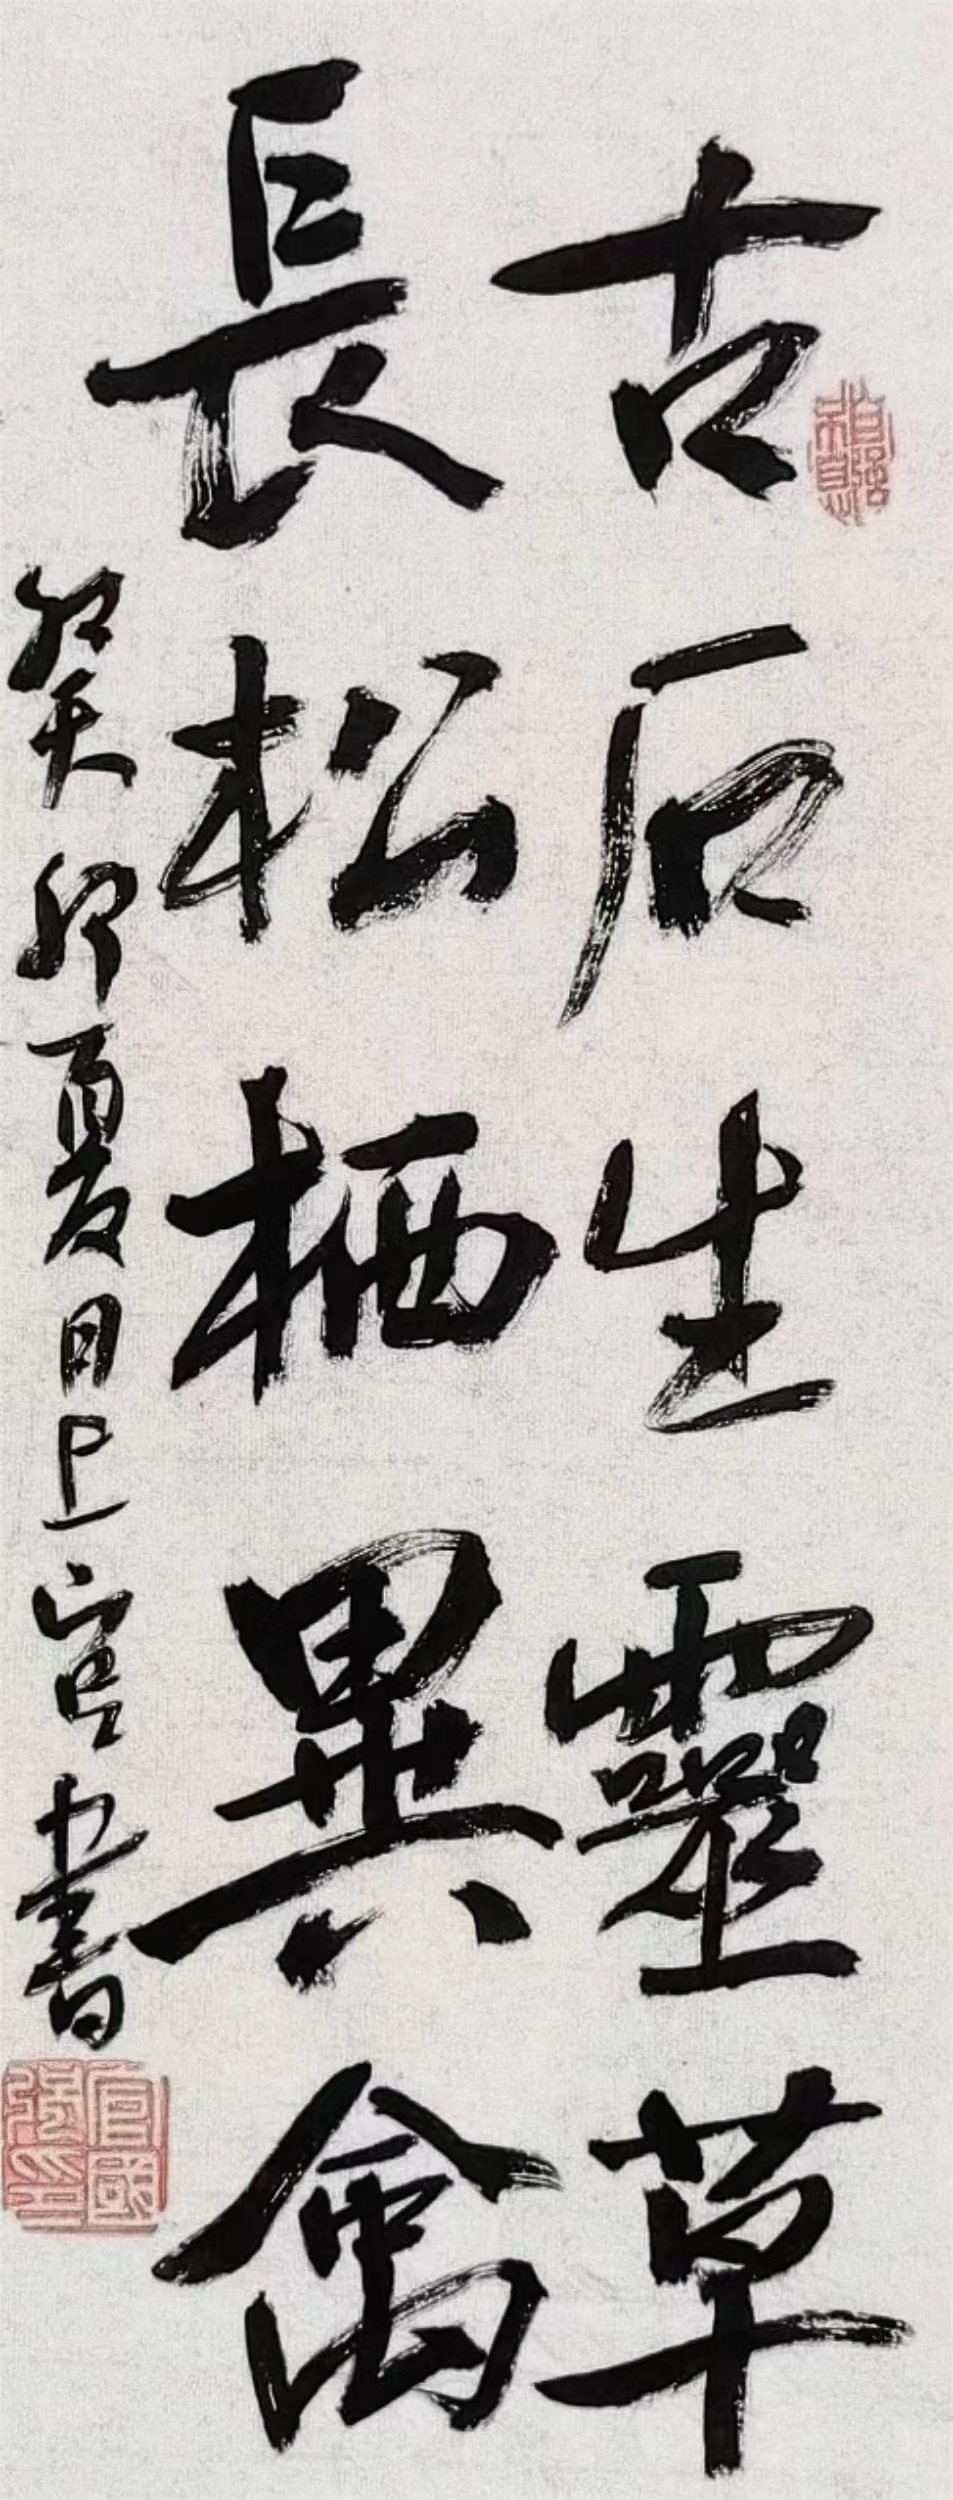 古石生靈草
長松栖異禽
癸卯夏日上官書